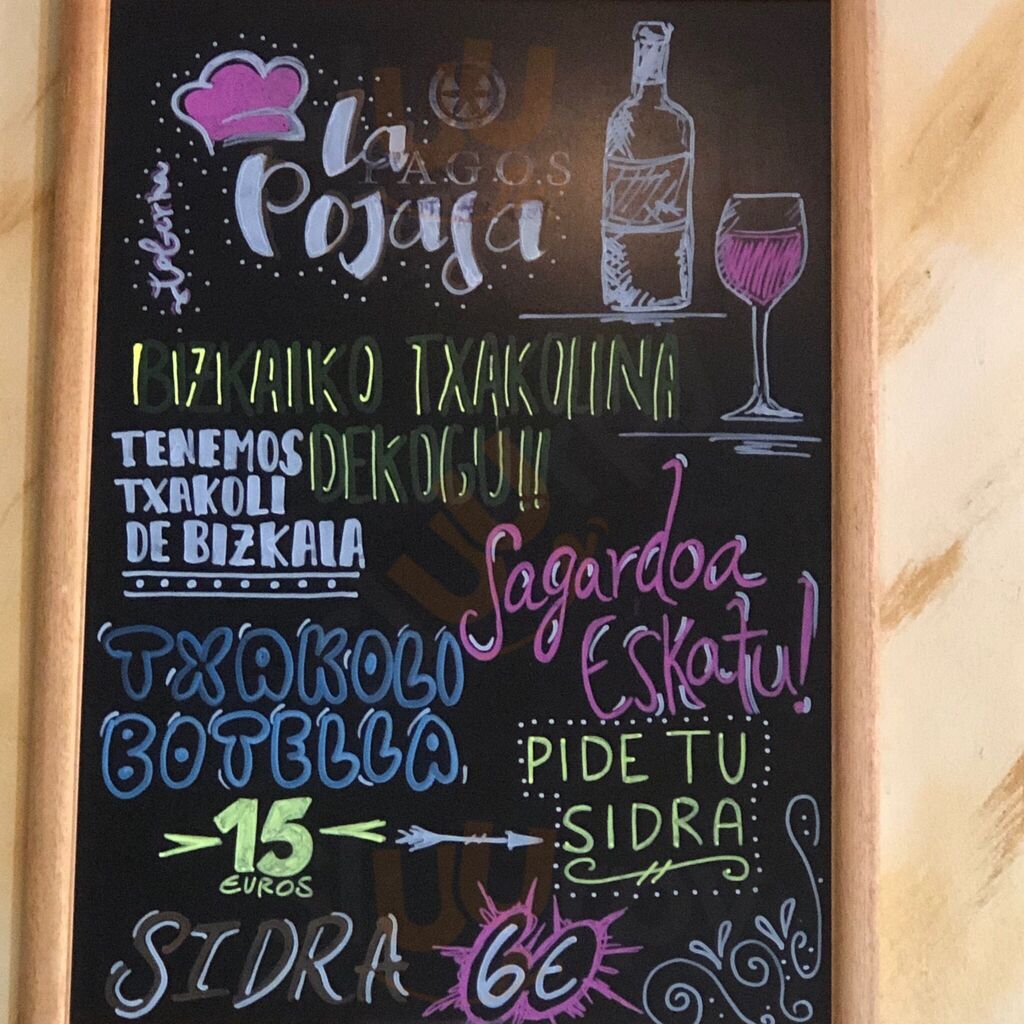 La
PAGOS
Pojaja
Taberna
BIZKAIKO TXAKOLINA
DEKOGU!!
TENEMOS
TXAKOLI
DE BIZKAIA
Sagardoa
ESKatu!
TXAKOLI
BOTELLA
PIDE TU
SIDRA
15
EUROS
SIDRA 6€